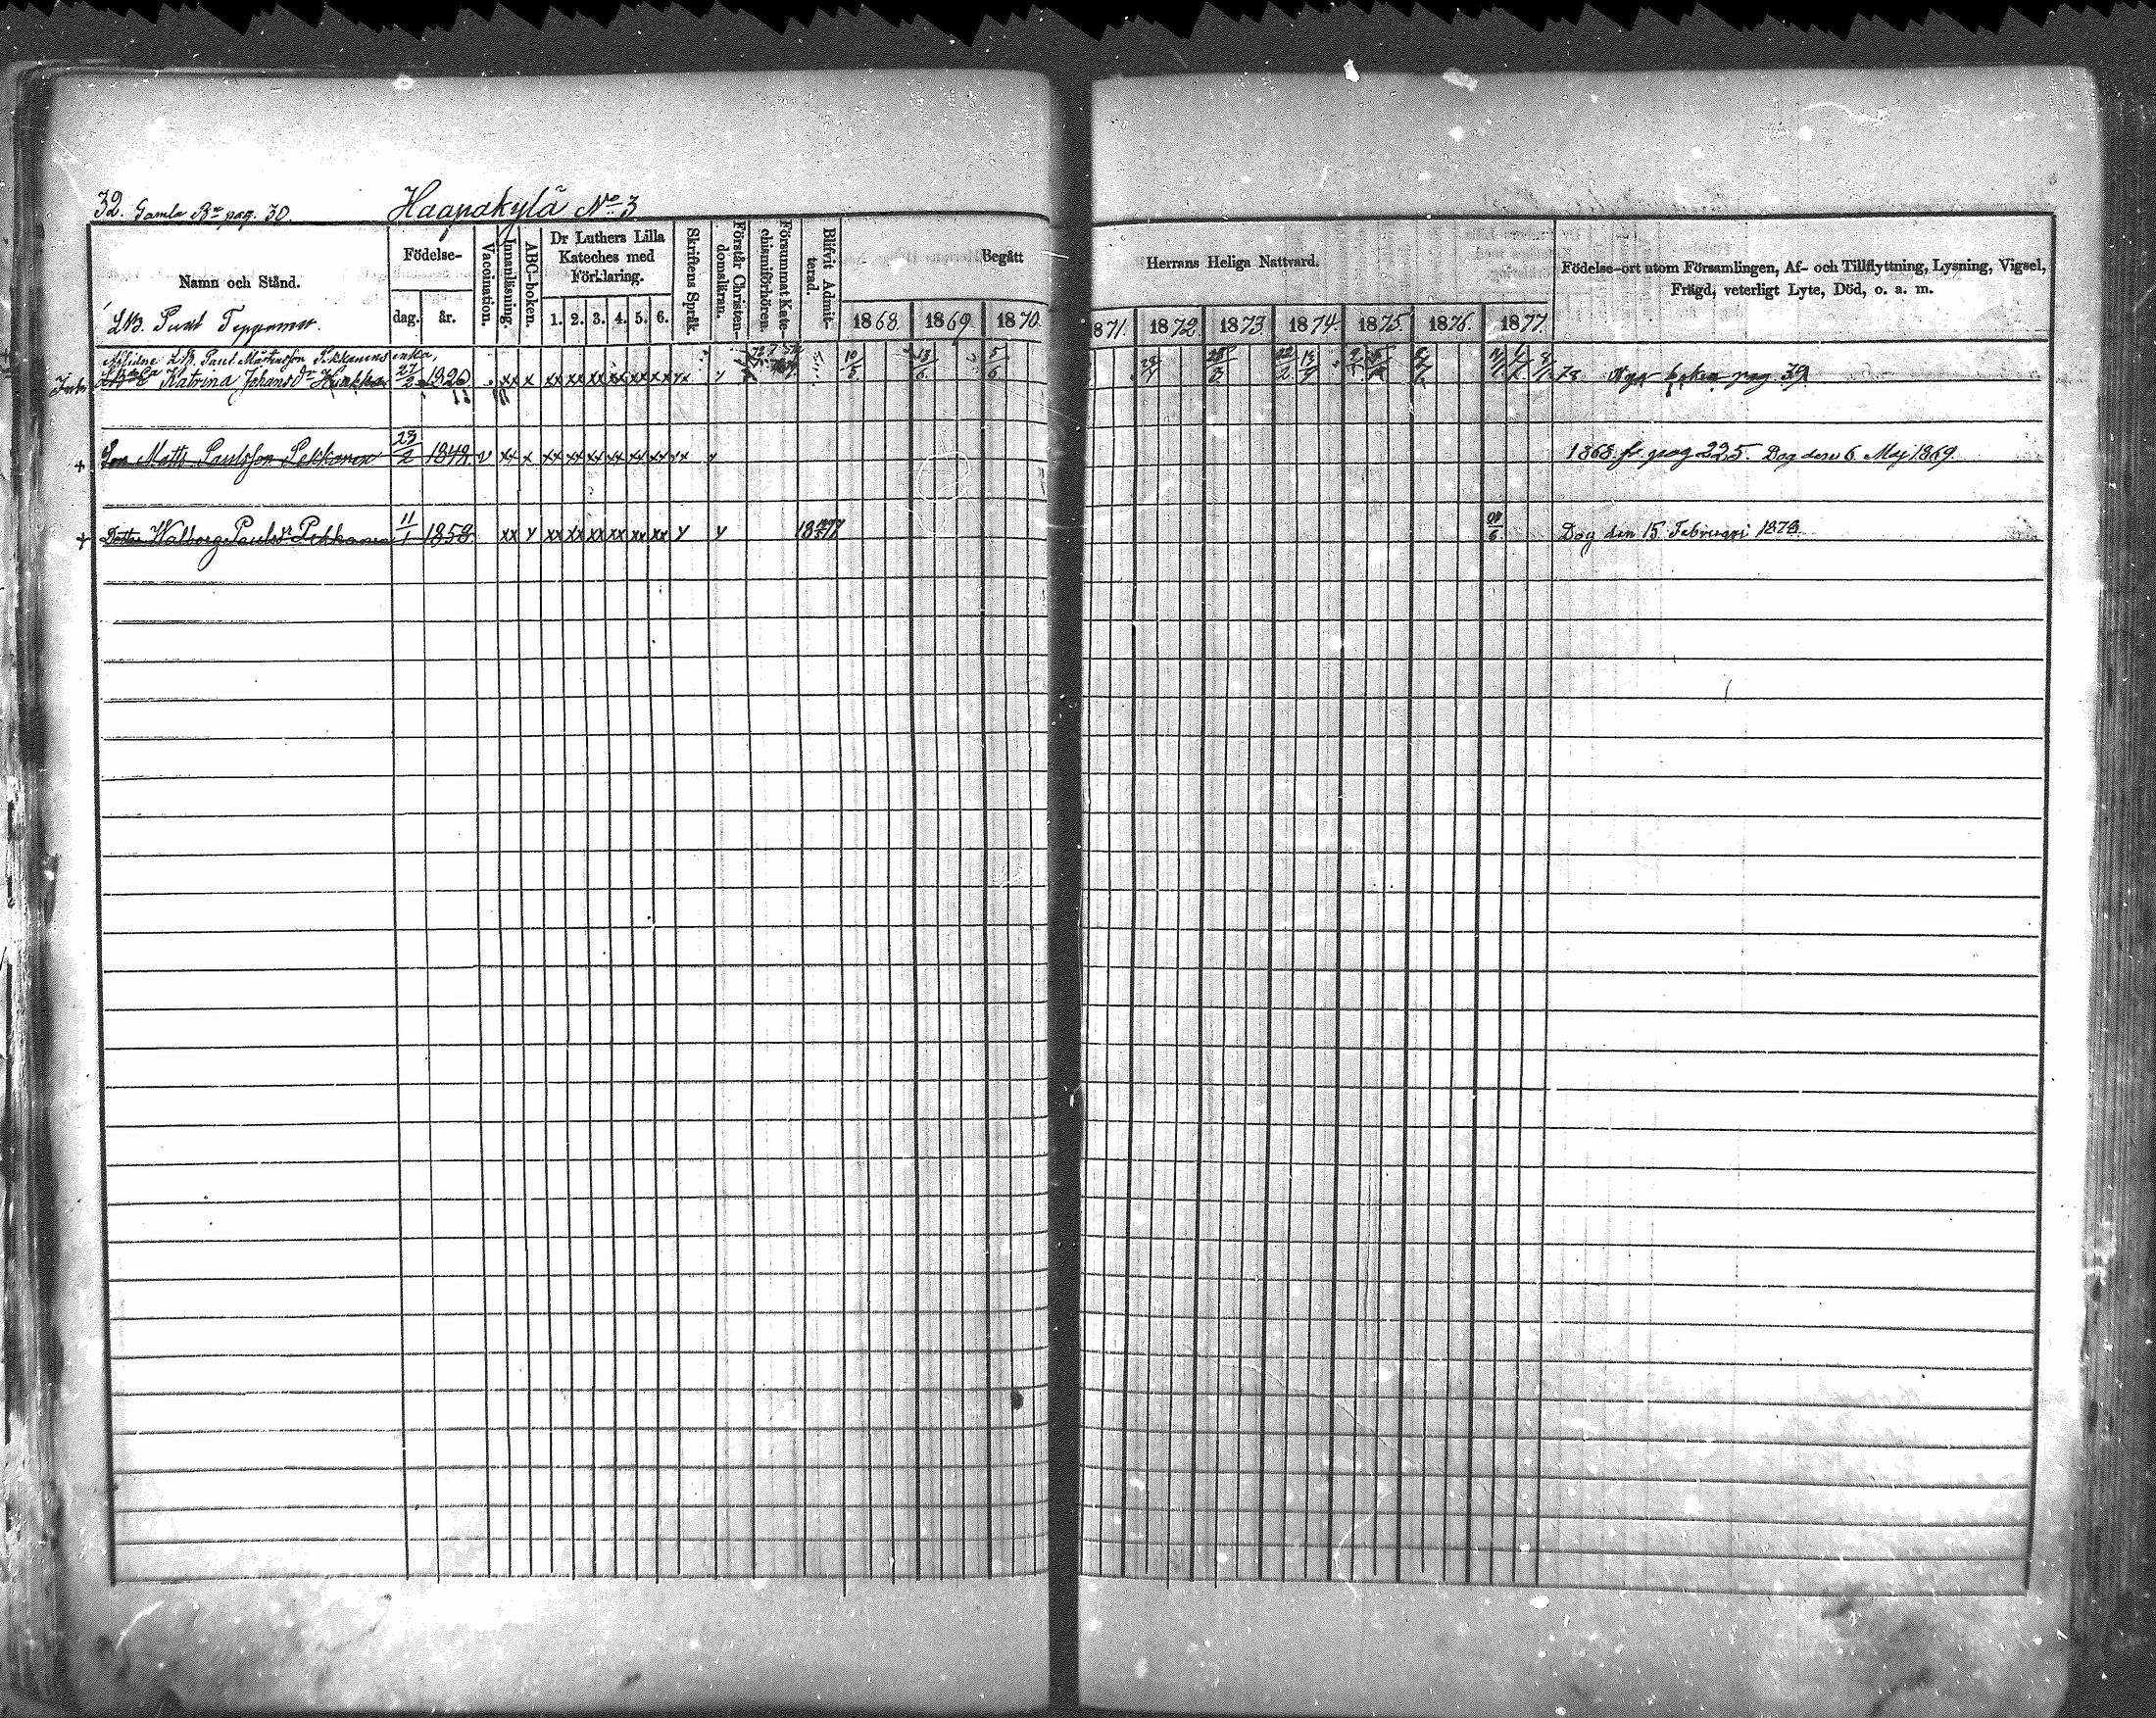 32. Gamla Bn pag. 30. Haapakylä No 3
Namn och Stånd.
Födelse-
dag. år.
Vaccination.
Innanläsning.
ABC-boken.
Dr Luthers Lilla
Kateches med
Förklaring.
1. 2. 3. 4. 5. 6.
Skriftens Språk.
Förstår Christen-
domsläran.
Försummat Kate-
chismiförhören.
Blifvit Admit-
terad.
Begått
1868. 1869. 1870.
Herrans Heliga Nattvard.
871. 1872. 1873. 1874. 1875. 1876. 1877.
Födelse-ort utom Församlingen, Af- och Tillflyttning, Lysning, Vigsel,
Frägd, veterligt Lyte, Död, o. a. m.
Aflidne LB. Paul Mattsson Pekkanens enka,
Katrina Johansdr 27/2 1820 xx x xx xx xx xx xx xx 10/5 13/6 5/6 78 Nya boken pag. 39
+ Son Matts Paulsson Pekkanen 23/2 1848. v xx x xx xx xx xx xx xx 1868 fr. pag 225. Dog den 6 Maj 1869.
+ Dotter Walborg Paulsdr Pekkanen 11/1 1858 xx y xx xx xx xx xx xx y y Dog den 15 Februari 1878.